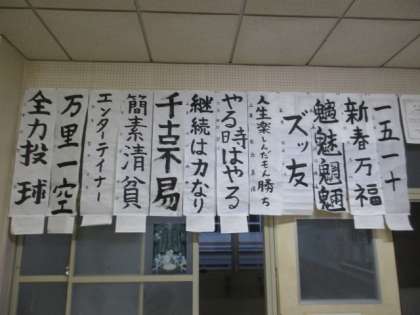 一五一十
新春万福
魑魅魍魎
ズッ友
人生楽しんだもん勝ち
やる時はやる
継続は力なり
千古不易
簡素清貧
エンターテイナー
万里一空
全力投球